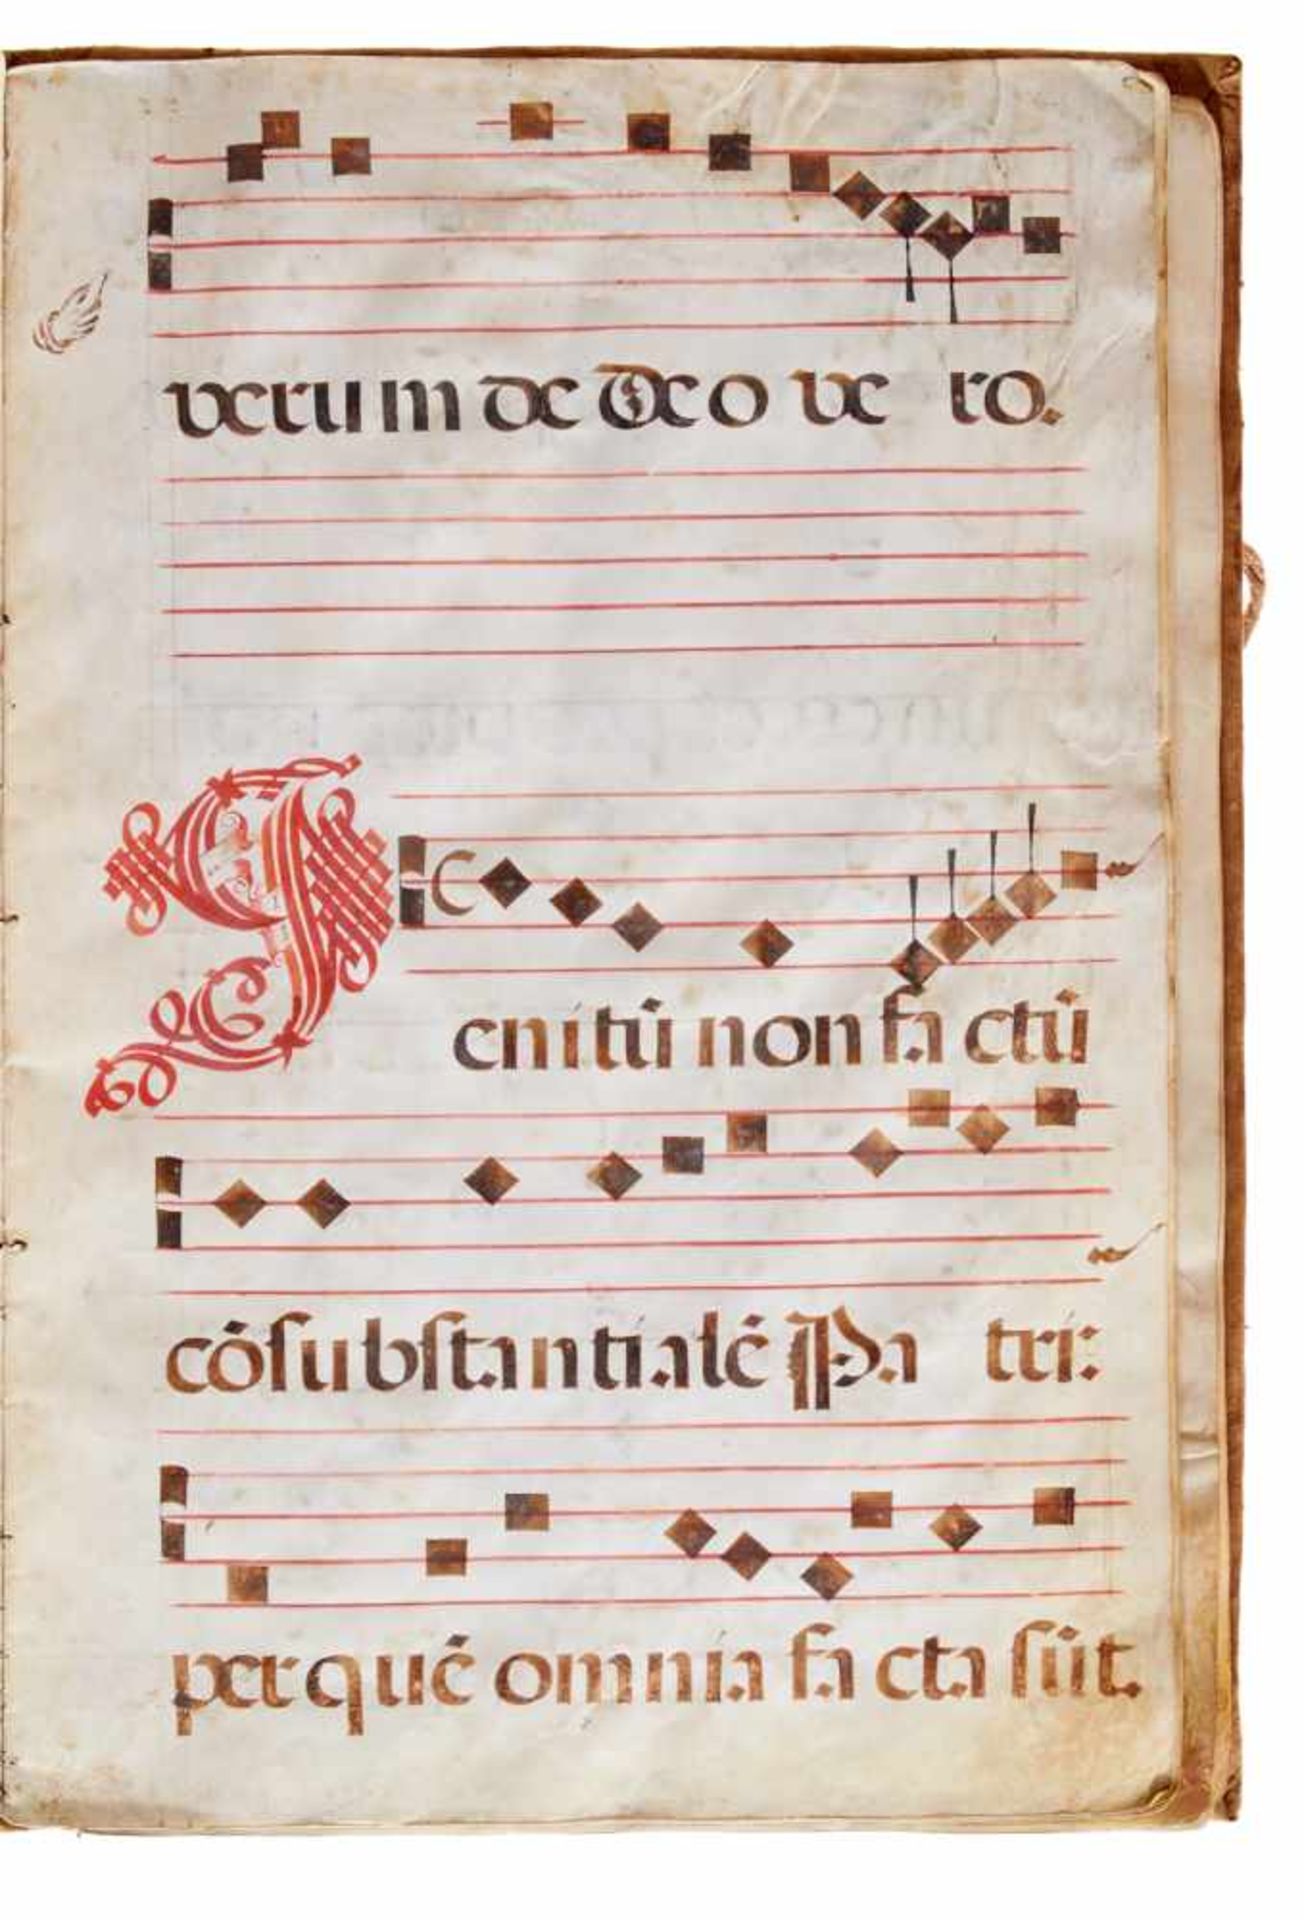 verum de Deo vero.
Genitũ non factũ
cõſubſtantialẽ Patri:
per quẽ omnia facta ſũt.